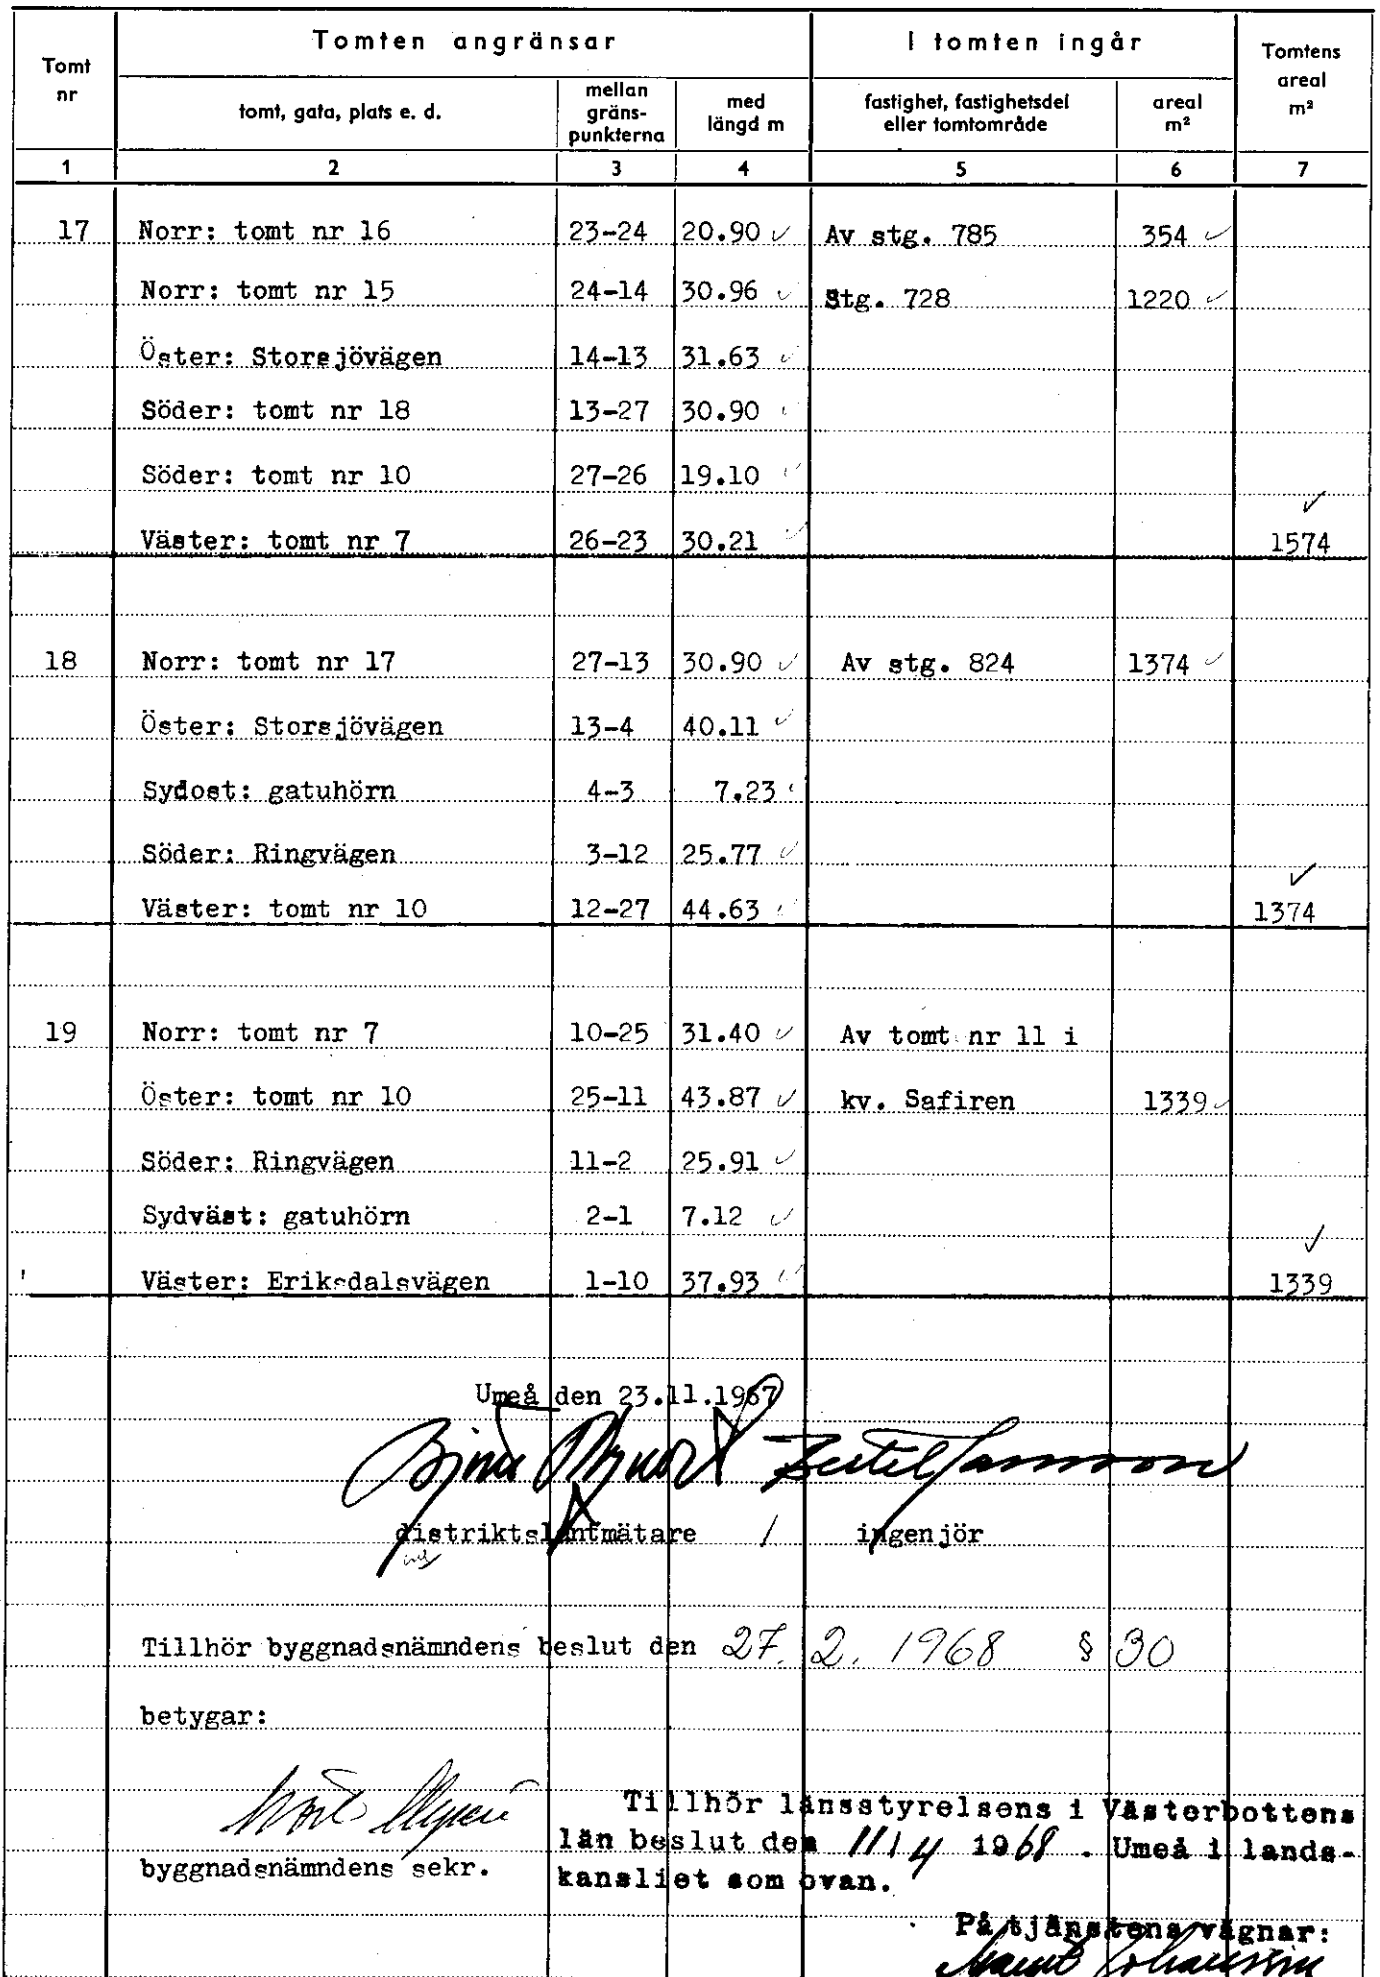 Tomt nr | Tomten angränsar | I tomten ingår | Tomtens areal m²
tomt, gata, plats e. d. | mellan gräns-punkterna | med längd m | fastighet, fastighetsdel eller tomtområde | areal m²
1 | 2 | 3 | 4 | 5 | 6 | 7
17 Norr: tomt nr 16 23-24 20.90 ✓ Av stg. 785 354 ✓
Norr: tomt nr 15 24-14 30.96 ✓ Stg. 728 1220 ✓
Öster: Storsjövägen 14-13 31.63 ✓
Söder: tomt nr 18 13-27 30.90 ✓
Söder: tomt nr 10 27-26 19.10 ✓
Väster: tomt nr 7 26-23 30.21 ✓ ✓ 1574
18 Norr: tomt nr 17 27-13 30.90 ✓ Av stg. 824 1374 ✓
Öster: Storsjövägen 13-4 40.11 ✓
Sydost: gatuhörn 4-3 7.23 ✓
Söder: Ringvägen 3-12 25.77 ✓
Väster: tomt nr 10 12-27 44.63 ✓ ✓ 1374
19 Norr: tomt nr 7 10-25 31.40 ✓ Av tomt nr 11 i
Öster: tomt nr 10 25-11 43.87 ✓ kv. Safiren 1339 ✓
Söder: Ringvägen 11-2 25.91 ✓
Sydväst: gatuhörn 2-1 7.12 ✓
Väster: Eriksdalsvägen 1-10 37.93 ✓ ✓ 1339
Umeå den 23.11.1967
Bertil
distriktslantmätare / ingenjör
Tillhör byggnadsnämndens beslut den 27. 2. 1968 § 30
betygar:
byggnadsnämndens sekr.
Tillhör länsstyrelsens i Västerbottens
län beslut den 11/4 1968. Umeå i lands-
kansliet som ovan.
På tjänstens vägnar:
Johansson